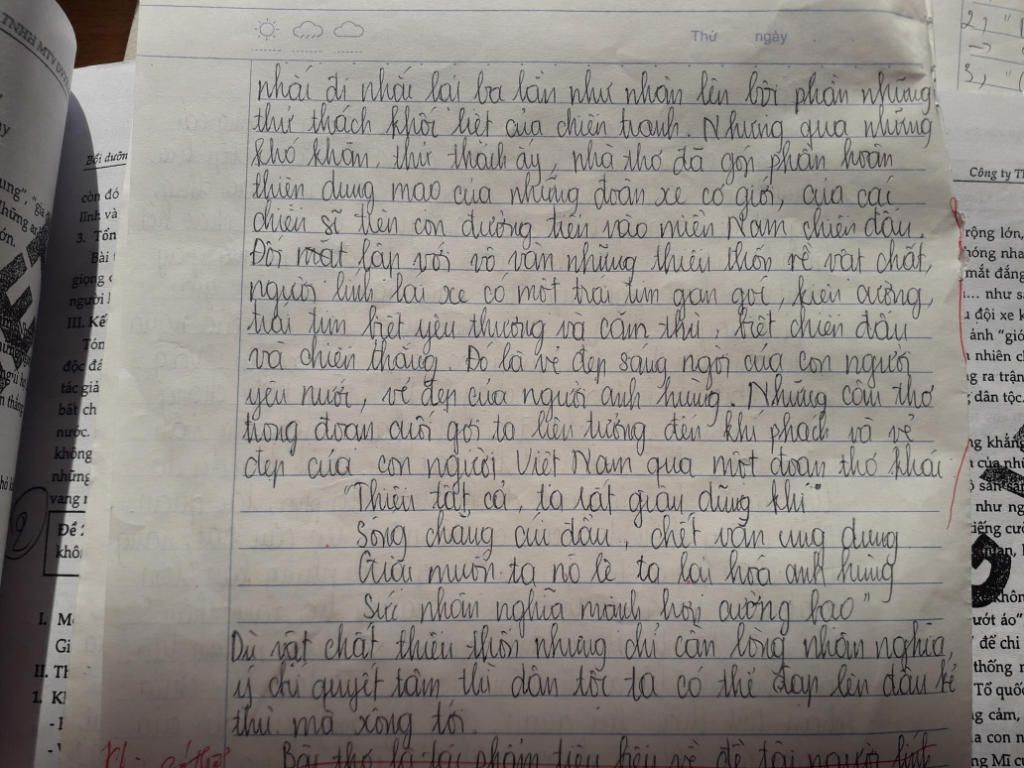 Thứ ngày
nhắc đi nhắc lại ba lần như nhân lên bội phần những
thử thách khốc liệt của chiến tranh. Nhưng qua những
khó khăn, thử thách ấy, nhà thơ đã góp phần hoàn
thiện dung mạo của những đoàn xe cơ giới, của các
chiến sĩ trên con đường tiến vào miền Nam chiến đấu.
Đối mặt lập với vô vàn những thiếu thốn về vật chất,
người lính lái xe có một trái tim gan góc, kiên cường,
trái tim biết yêu thương và căm thù, biết chiến đấu
và chiến thắng. Đó là vẻ đẹp sáng ngời của con người
yêu nước, vẻ đẹp của người anh hùng. Những câu thơ
trong đoạn cuối gợi ta liên tưởng đến khí phách và vẻ
đẹp của con người Việt Nam qua một đoạn thơ khác
"Thiếu tất cả, ta rất giàu dũng khí"
Sống chẳng cúi đầu, chết vẫn ung dung
Giặc muốn ta nô lệ ta lại hoá anh hùng
Sức nhân nghĩa mạnh hơn cường bạo"
Dù vật chất thiếu thốn nhưng chỉ cần lòng nhân nghĩa,
ý chí quyết tâm thì dân tộc ta có thể đạp lên đầu kẻ
thù mà xông tới.
Bài thơ là tác phẩm tiêu biểu về đề tài người lính
TNHH MTV
Bồi dưỡn
còn đó
lĩnh và
3. Tổn
Bài
giọng
người l
III. Kế
Tóm
độc đá
tác giả
bất ch
nước.
không
những
vang
Đề
khô
I. M
Gi
II. Th
1. K
2, "
3, "
Công ty T
rộng lớn,
hóng nha
mắt đắng
... như s
đội xe k
ảnh "gió
nhiên ch
g ra trận
dân tộc.
khẳng
của nh
như ng
tiếng cườ
không
ướt áo"
để chi
thống n
Tổ quố
g cảm,
a con n
g Mĩ c